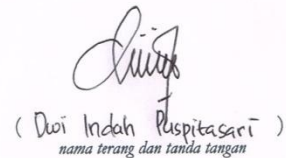 ( Dwi Indah Puspitasari )
nama terang dan tanda tangan